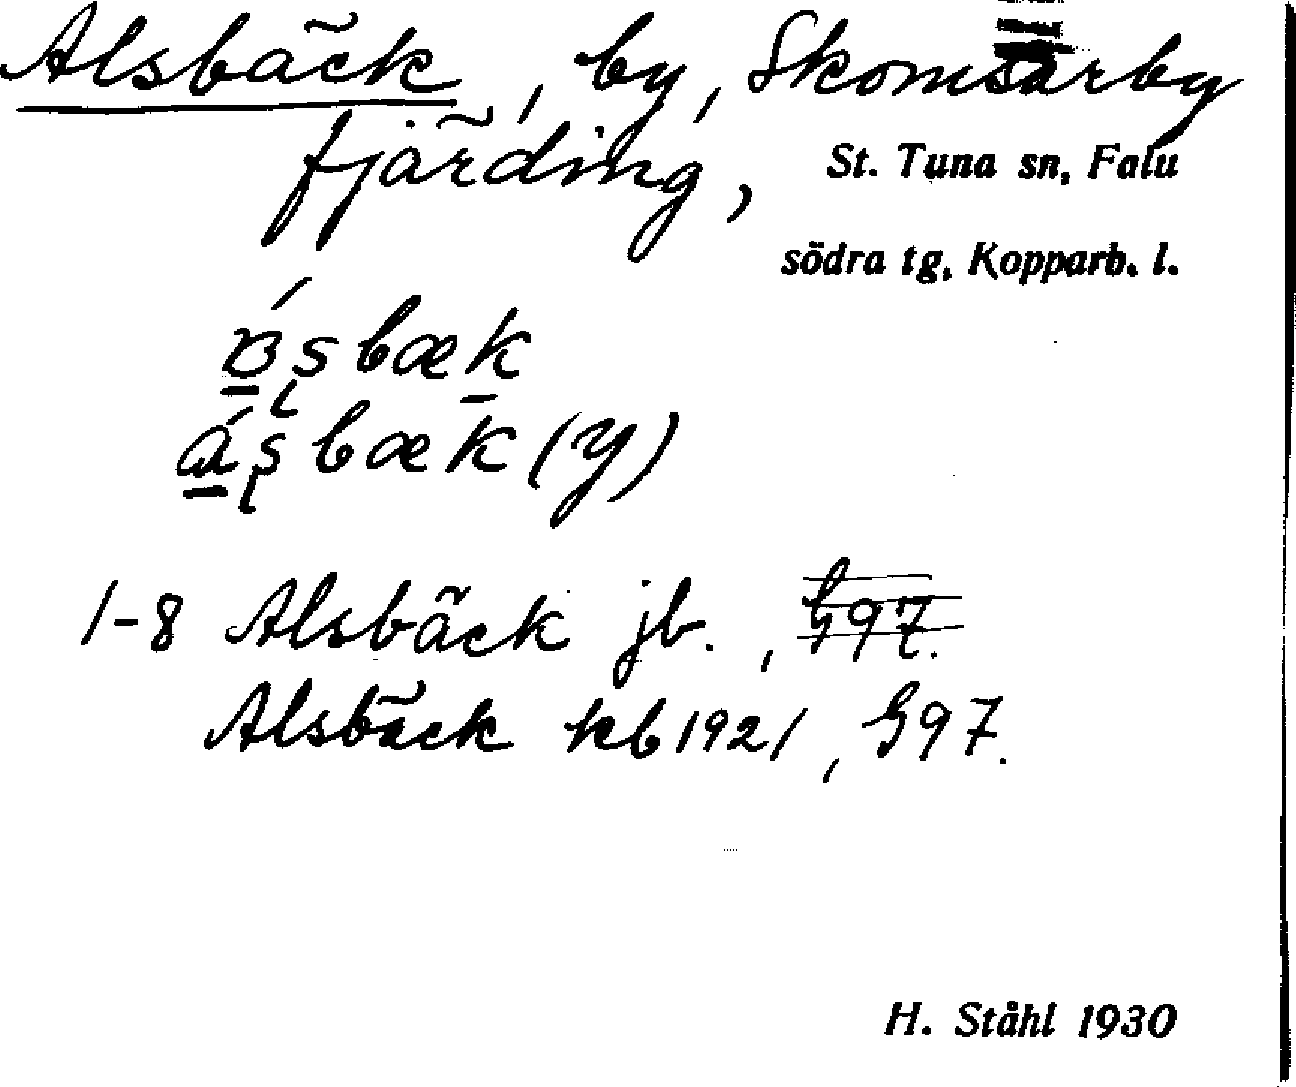 Alsbäck, by, Skomsarby
fjärding,
St. Tuna sn, Falu
södra tg, Kopparb. l.
bæk
bæk (y)
1-8 Alsbäck jb., G97.
Alsbäck kb 1921, G97.
H. Ståhl 1930